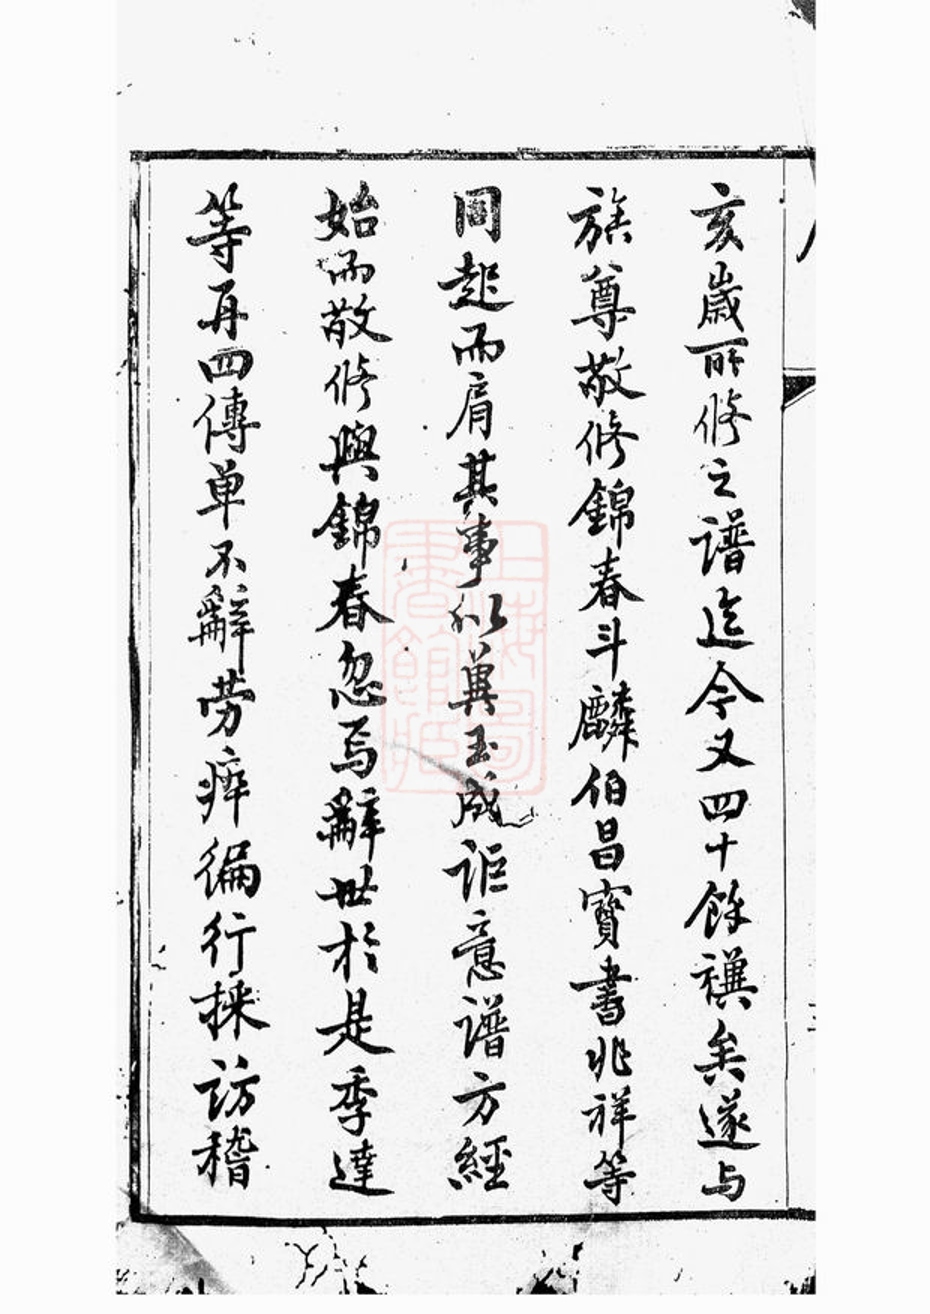 亥歲所修之譜迄今又四十餘禩矣遂与
族尊敬修錦春斗麟伯昌寶書兆祥等
同起而肩其事以兾玉成詎意譜方經
始而敬修與錦春忽焉辭世於是季達
等再四傳单不辭劳瘁徧行採訪稽